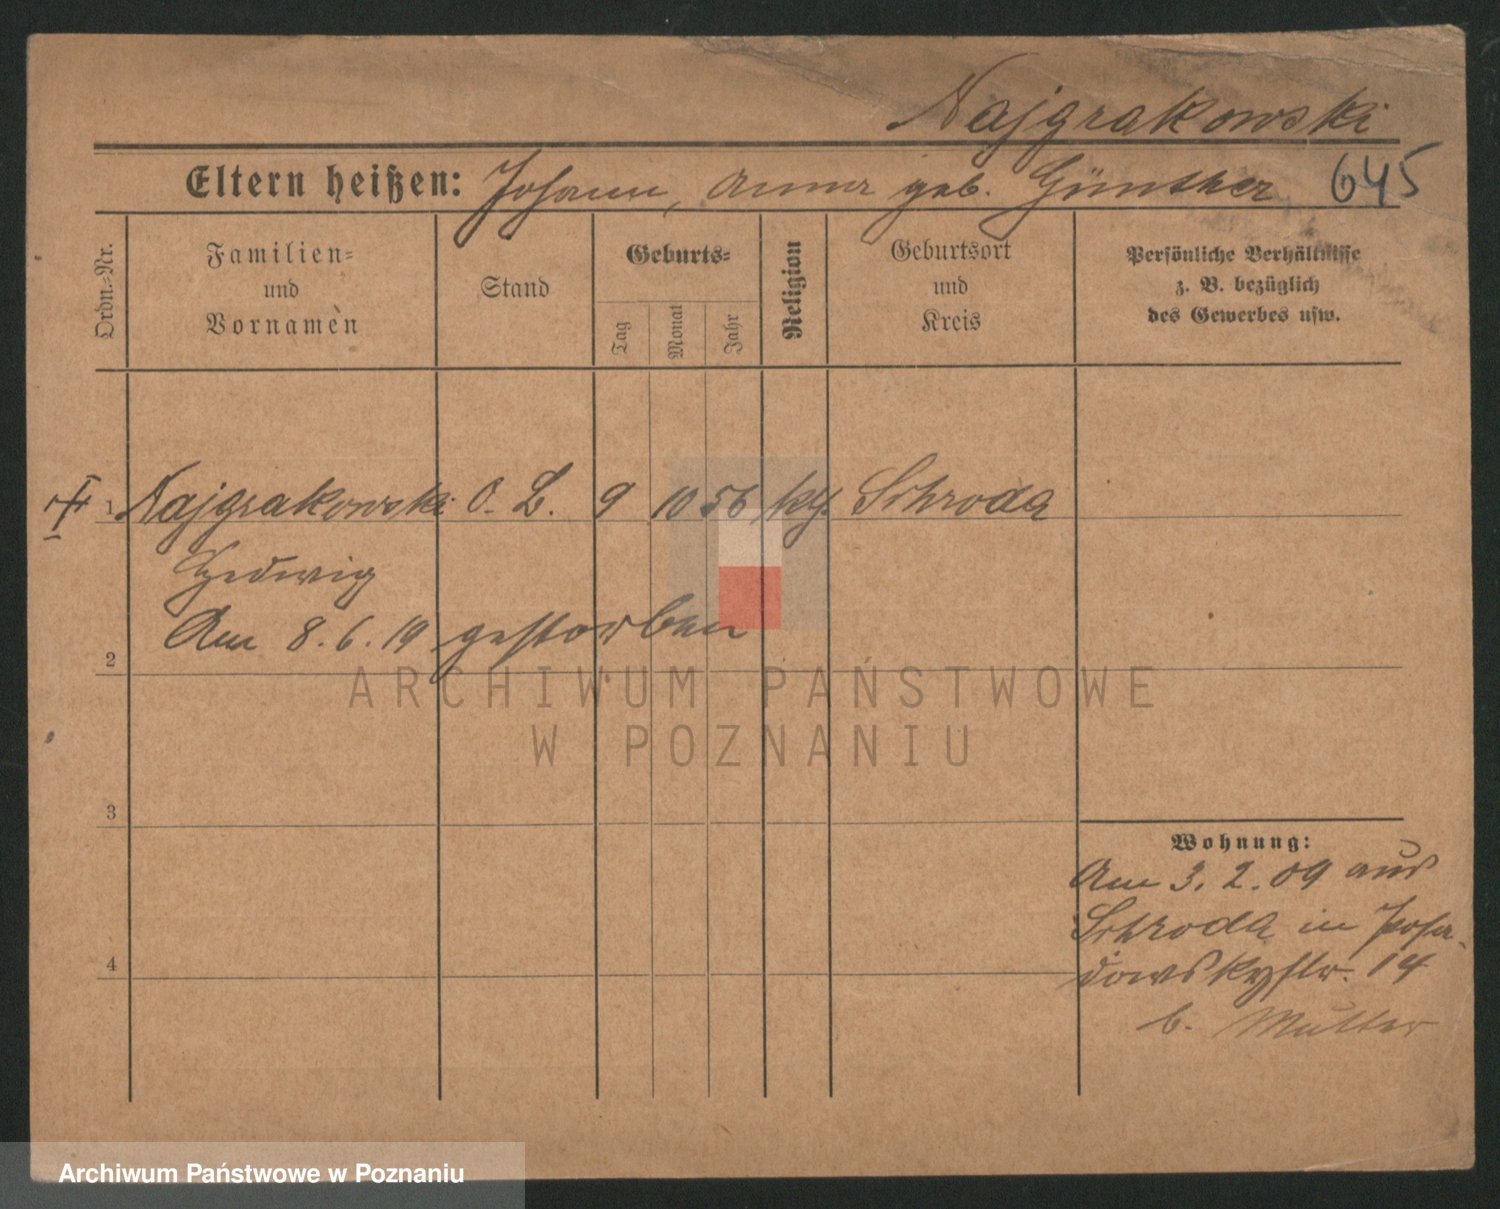 Najgrakowski
Eltern heißen: Johann, Anna geb. Günther 645
Ordn.-Nr.
Familien-
und
Vornamen
Stand
Geburts-
Tag
Monat
Jahr
Religion
Geburtsort
und
Kreis
Persönliche Verhältnisse
z. B. bezüglich
des Gewerbes usw.
1 Najgrakowski O. L. 9 10 56 kth. Schroda
Hedwig
Am 8. 6. 19 gestorben
2
ARCHIWUM PAŃSTWOWE
W POZNANIU
3
Wohnung:
Am 3. 2. 09 aus
Schroda in Posa-
dowskystr. 14
4
b. Mutter
Archiwum Państwowe w Poznaniu